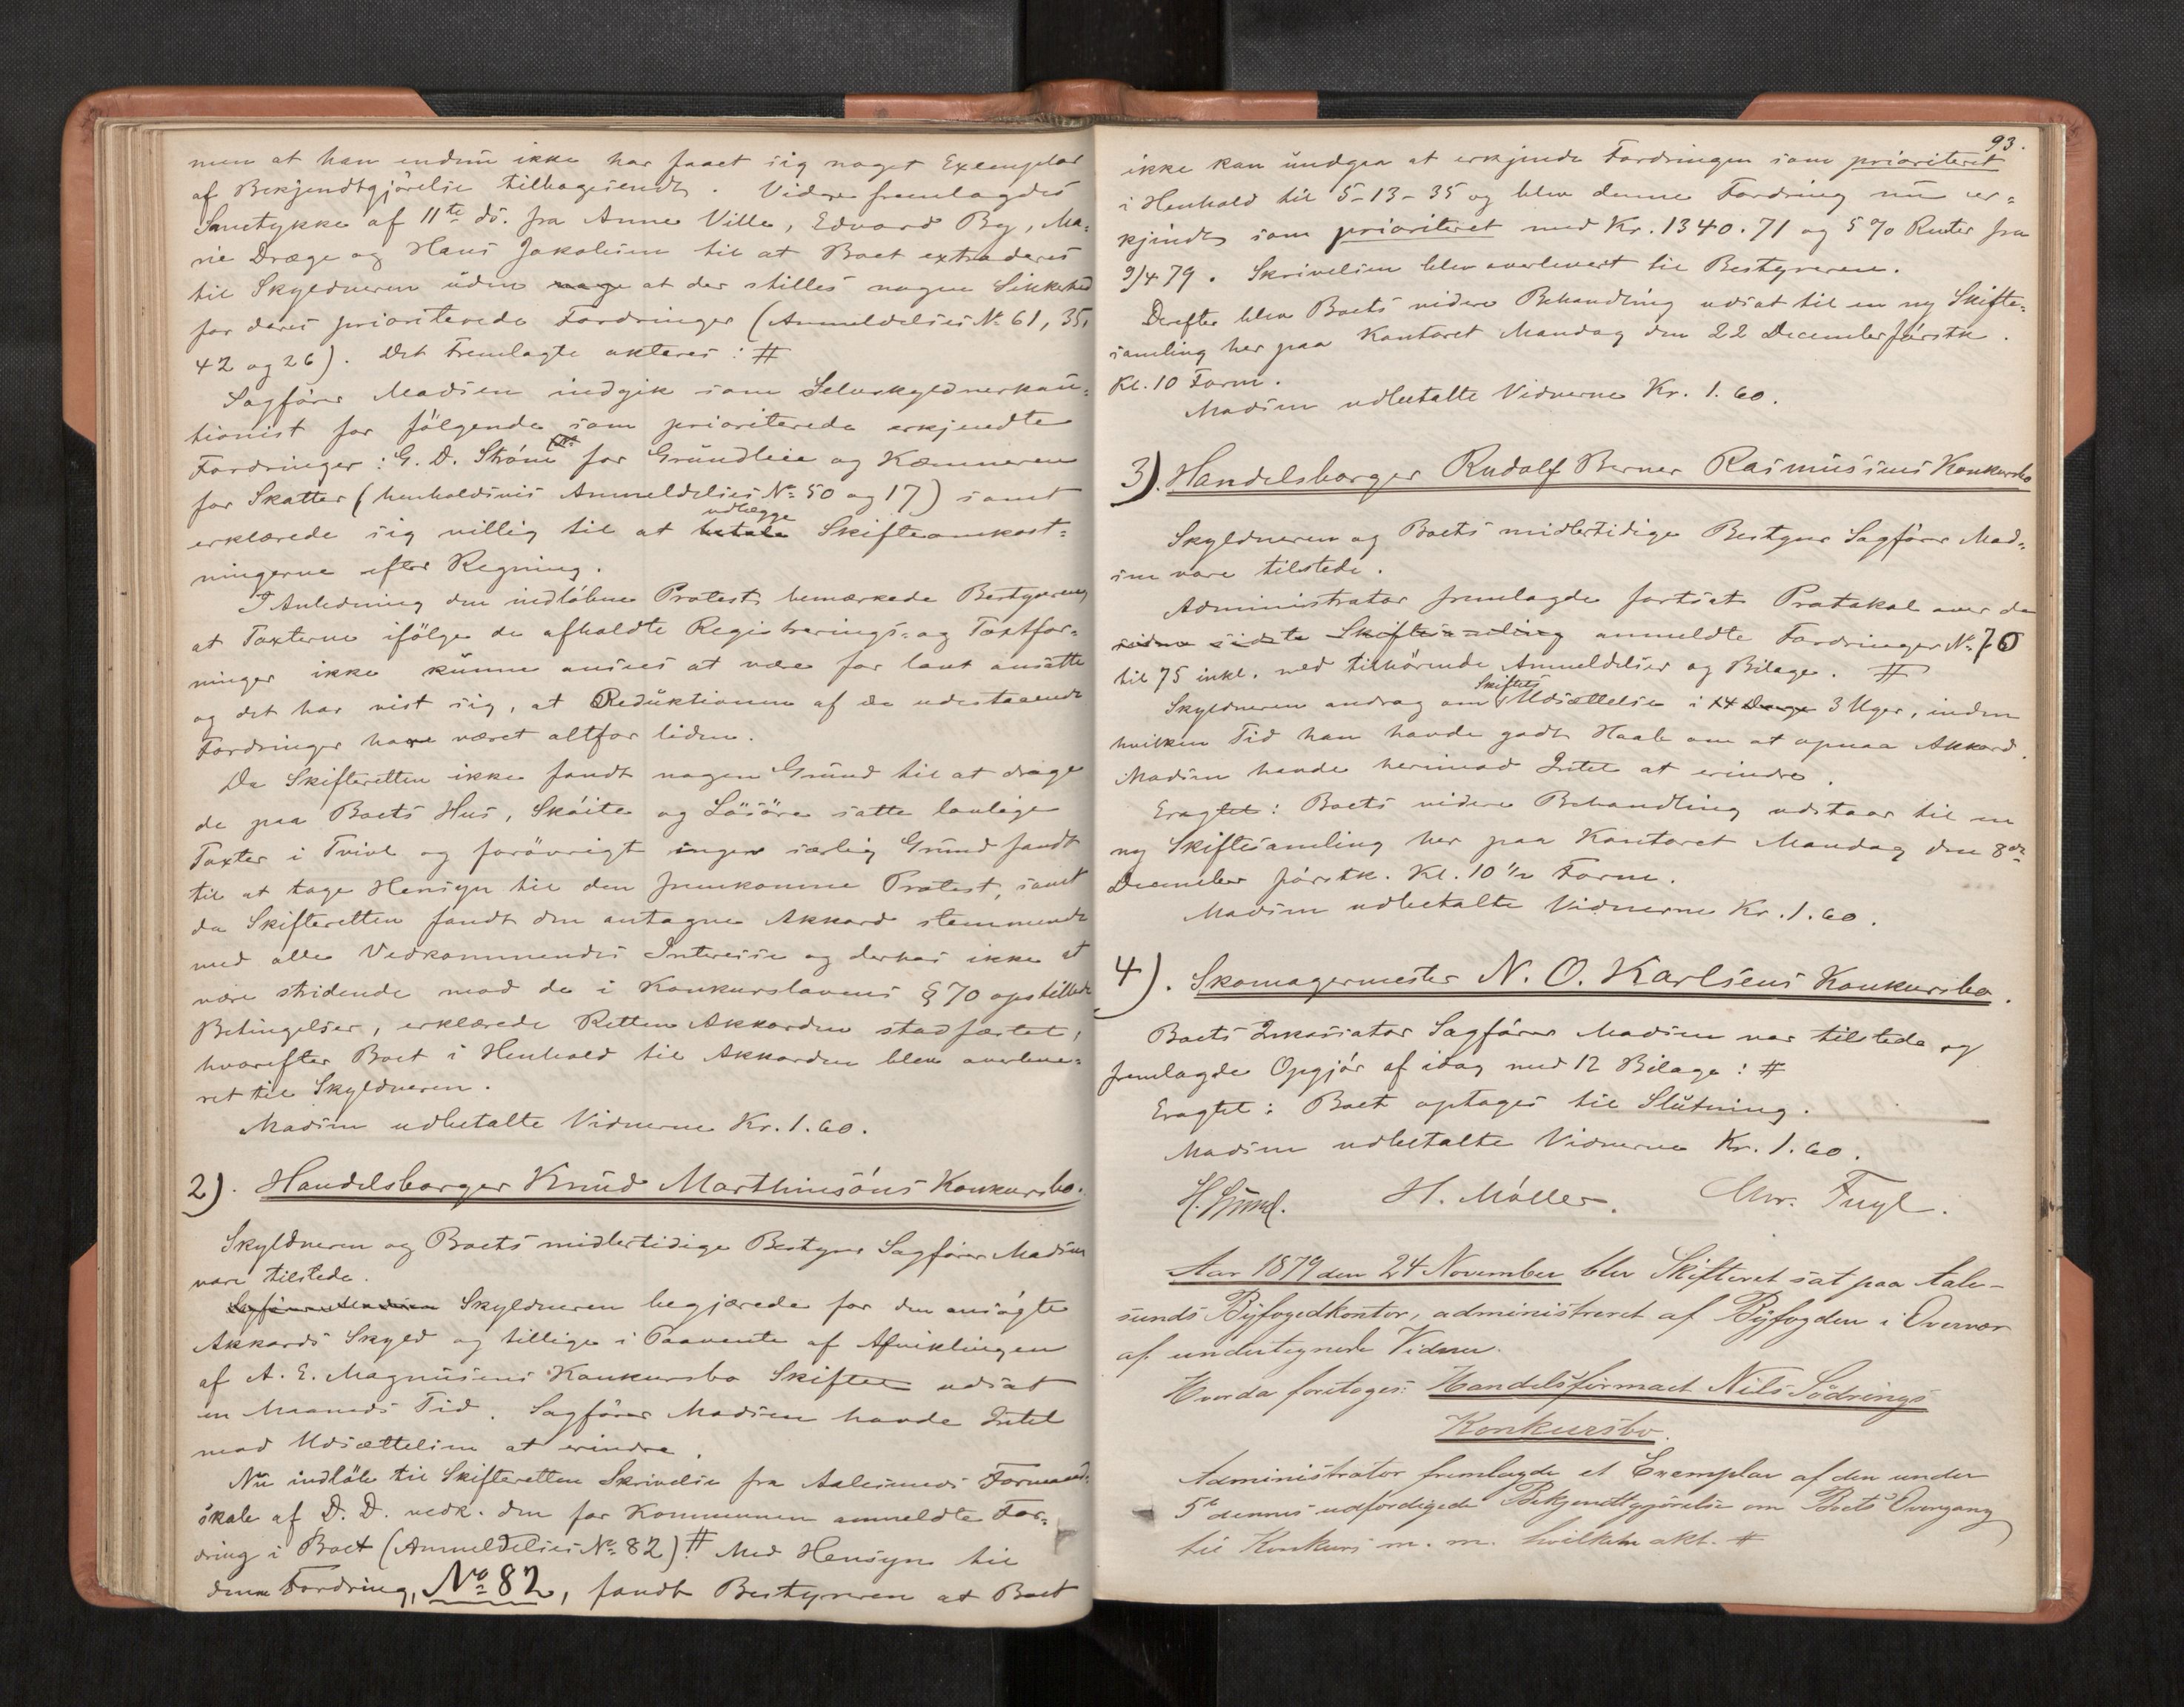 men at han endnu ikke har faaet sig noget Exemplar
af Bekjendtgjörelse tilbagesendt. Videre fremlagdes
Samtykke af 11te ds. fra Anne Ville, Edvard By, Ma=
rie Dræge og Hans Jakobsen til at Boet extraderes
til Skyldneren uden noge at der stilles nogen Sikkerhed
for deres prioriterede Fordringer (Anmeldelses No 61, 35,
42 og 26). Det Fremlagte akteres: #
Sagförer Madsen indgik som Selvskyldnerkau=
tionist for fölgende som prioriterede erkjendte
Fordringer: G. D. Ström for Grundleie og Kæmneren
for Skatter (henholdsvis Anmeldelses No 50 og 17) samt
erklærede sig villig til at betale udlægge Skifteomkost=
ningerne efter Regning.
I Anledning den indlöbne Protest bemærkede Bestyreren,
at Taxterne ifölge de afholdte Registrerings- og Taxtfor=
ninger ikke kunne ansees at være for lavt ansatte
og det har vist sig, at Reduktionen af de udestaaende
Fordringer have været altfor liden.
Da Skifteretten ikke fandt nogen Grund til at drage
de paa Boets Hus, Sköite og Lösöre satte lovlige
Taxter i Tvivl og forövrigt ingen særlig Grund fandt
til at tage Hensyn til den fremkomne Protest, samt
da Skifteretten fandt den antagne Akkord stemmende
med alle Vedkommendes Interesse og derhos ikke at
være stridende mod de i Konkurslovens § 70 opstillede
Betingelser, erklærede Retten Akkorden stadfæstet,
hvorefter Boet i Henhold til Akkorden blev overleve=
ret til Skyldneren.
Madsen udbetalte Vidnerne Kr. 1.60.
2). Handelsborger Knud Marthinsöns Konkursbo.
Skyldneren og Boets midlertidige Bestyrer Sagförer Madsen
vare tilstede.
Skyldneren begjærede for den ansögte
Akkords Skyld og tillige i Paavente af Afviklingen
af A. E. Magnusens Konkursbo Skiftet udsat
en Maaneds Tid. Sagförer Madsen havde Intet
mod Udsættelsen at erindre.
Nu indlöb til Skifteretten Skrivelse fra Aalesunds Formand=
skab af D. D. vedk. den for Kommunen anmeldte For=
dring i Boet (Anmeldelses No 82) # Med Hensyn til
denne Fordring, No 82, fandt Bestyreren at Boet
93.
ikke kan undgaa at erkjende Fordringen som prioriteret
i Henhold til 5-13-35 og blev denne Fordring nu er=
kjendt som prioriteret med Kr. 1340.71 og 5 % Renter fra
9/4 79. Skrivelsen blev overlevert til Bestyreren.
Derefter blev Boets videre Behandling udsat til en ny Skifte=
samling her paa Kontoret Mandag den 22 December förstk.
Kl. 10 Form.
Madsen udbetalte Vidnerne Kr. 1.60.
3). Handelsborger Rudolf Berner Rasmussens Konkursbo
Skyldneren og Boets midlertidige Bestyrer Sagförer Mad=
sen vare tilstede.
Administrator fremlagde fortsat Protokol over de
siden sidste Skiftesamling anmeldte Fordringer No 70
til 75 inkl. med tilhörende Anmeldelser og Bilage. #
Skyldneren androg om Skiftets Udsættelse i 14 Dage 3 Uger, inden
hvilken Tid han havde godt Haab om at opnaa Akkord.
Madsen havde herimod Intet at erindre.
Eragtet: Boets videre Behandling udstaar til en
ny Skiftesamling her paa Kontoret Mandag den 8de
December förstk. Kl. 10 1/2 Form.
Madsen udbetalte Vidnerne Kr. 1.60.
4). Skomagermester N. O. Karlsens Konkursbo.
Boets Inkassator Sagförer Madsen var tilstede og
fremlagde Opgjör af idag med 12 Bilage: #
Eragtet: Boet optages til Slutning.
Madsen udbetalte Vidnerne Kr. 1.60.
H. Möller. Chr. Fugl.
Aar 1879 den 24 November blev Skifteret sat paa Aale-
sunds Byfogedkontor, administreret af Byfogden i Overvær
af undertegnede Vidner.
Hvorda foretoges: Handelsfirmaet Nils Södrings
Konkursbo.
Administrator fremlagde et Exemplar af den under
5te dennes udfærdigede Bekjendtgjörelse om Boets Overgang
til Konkurs m. m. hvilken akt. #